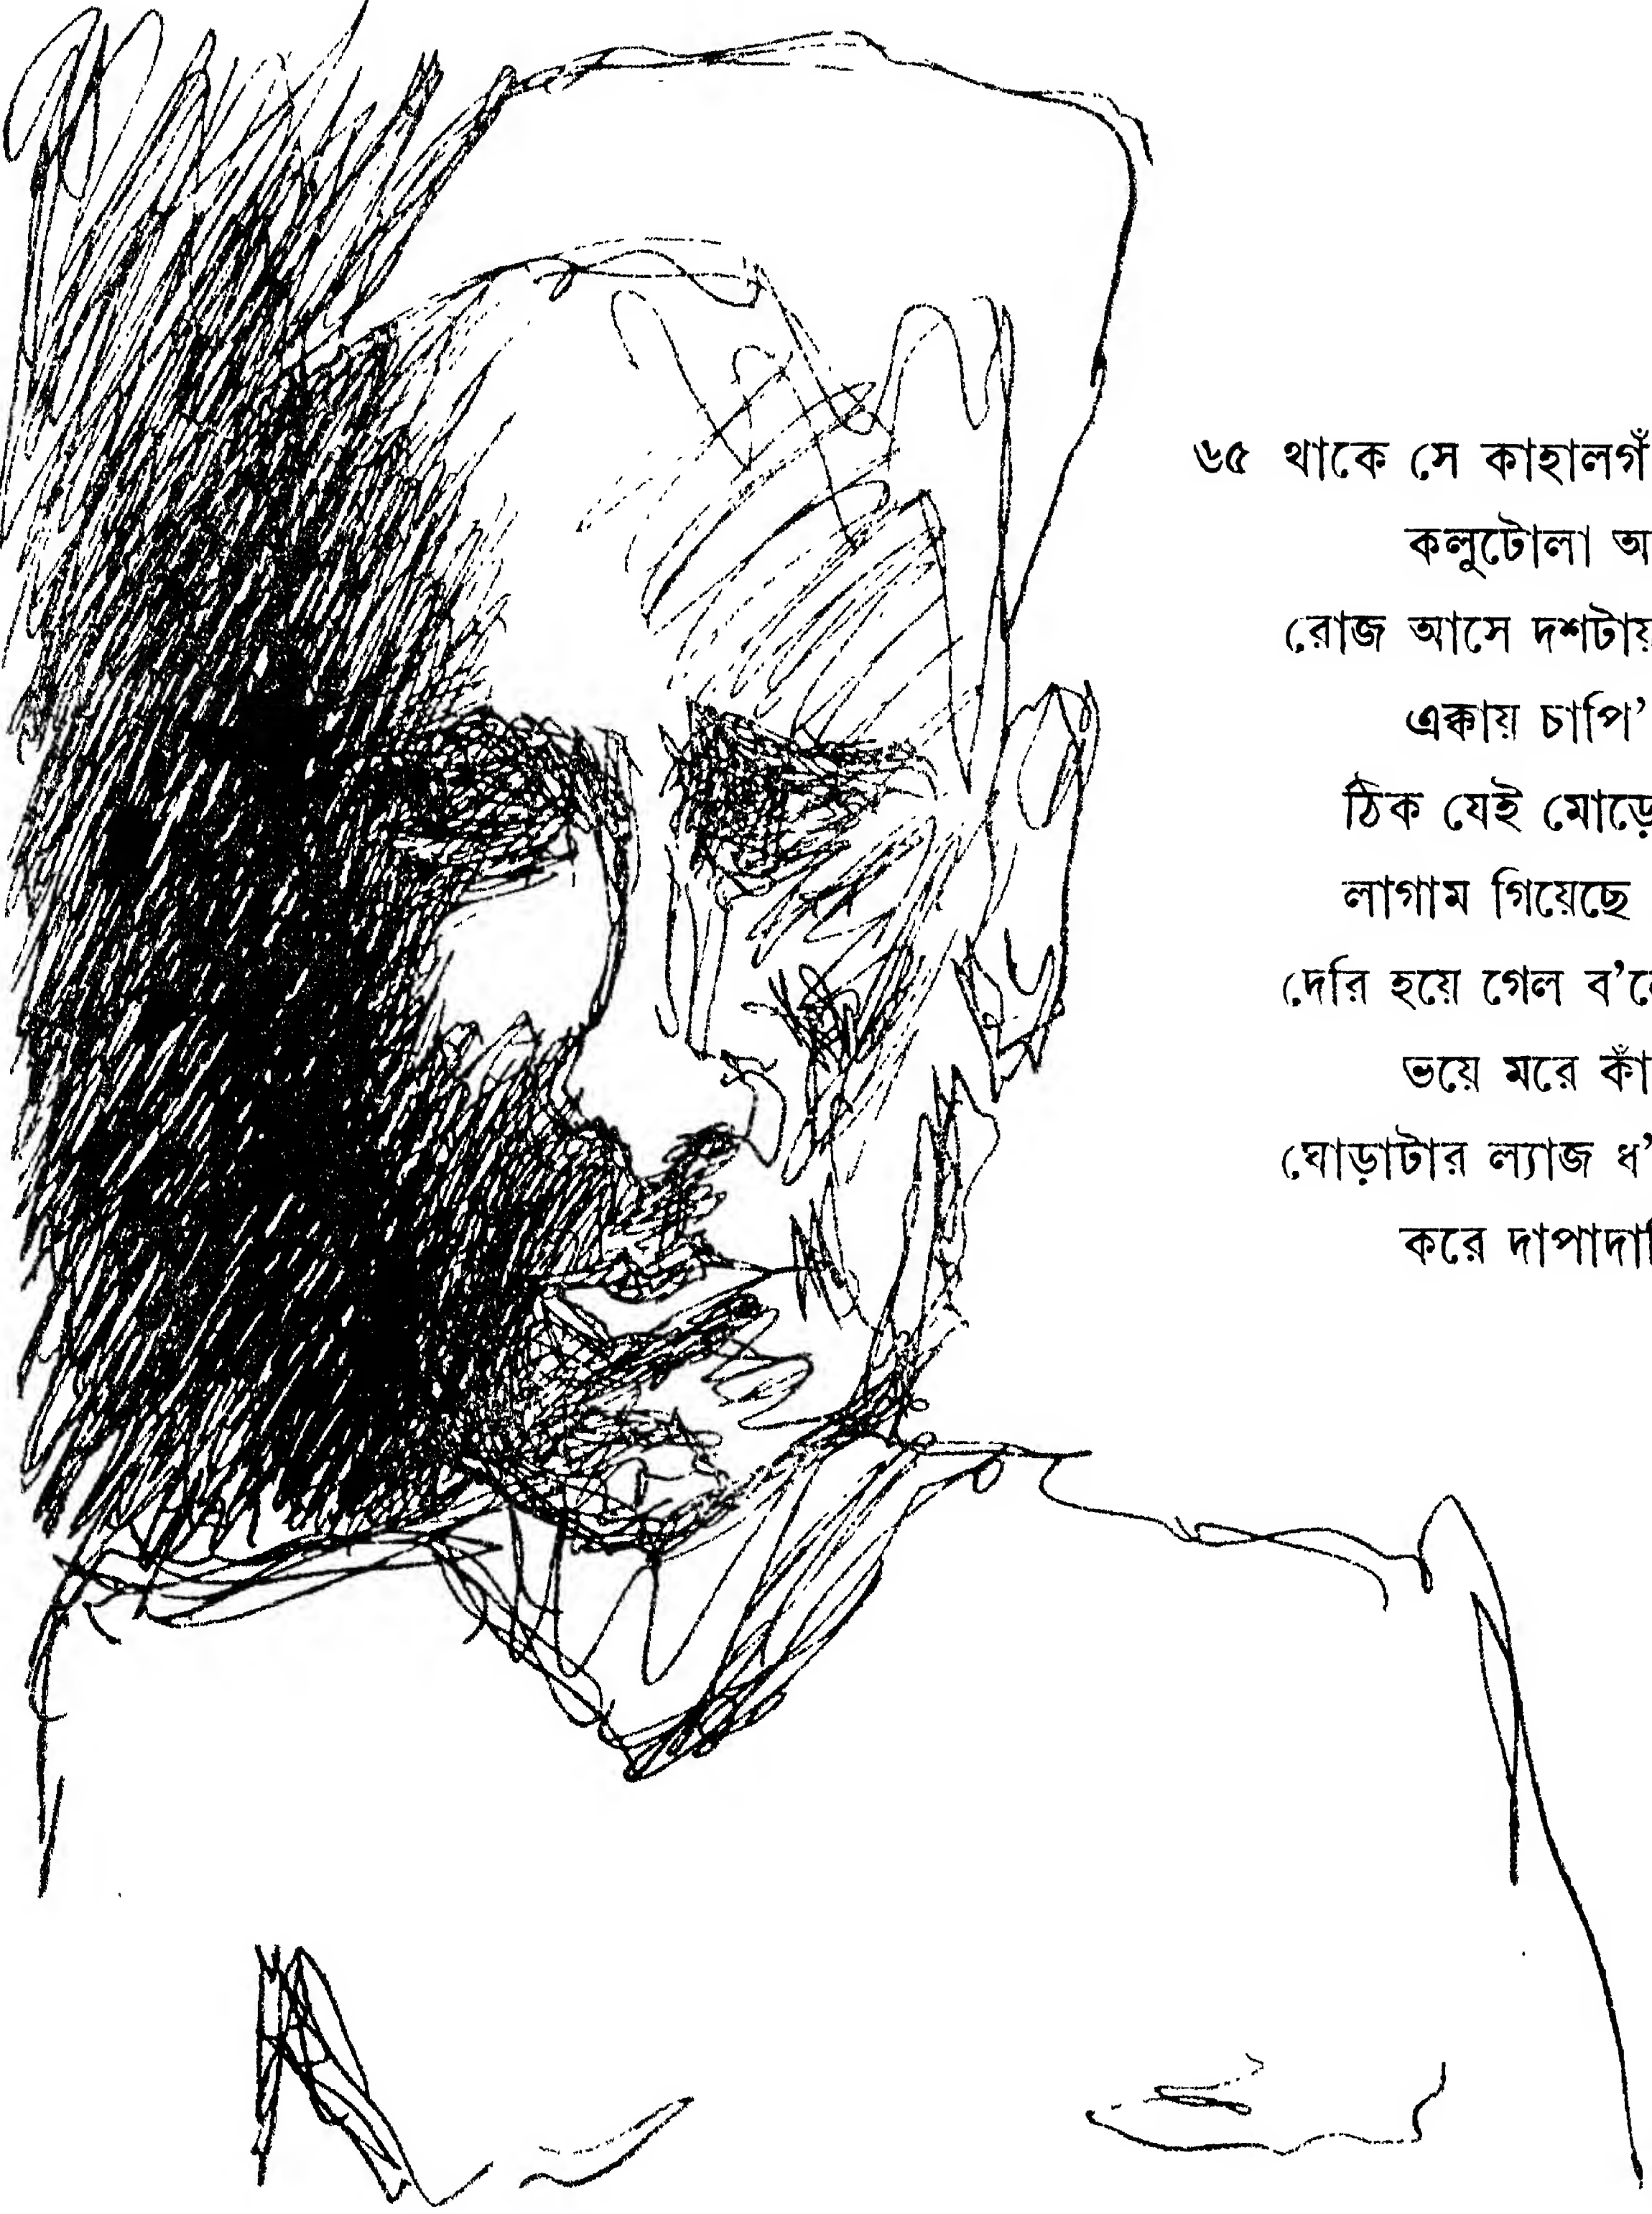 ৬৫ থাকে সে কাহালগঁ
কলুটোলা অ
রোজ আসে দশটায়
এক্কায় চাপি’
ঠিক যেই মোড়ে
লাগাম গিয়েছে
দেরি হয়ে গেল ব’লে
ভয়ে মরে কাঁ
ঘোড়াটার ল্যাজ ধ’
করে দাপাদা